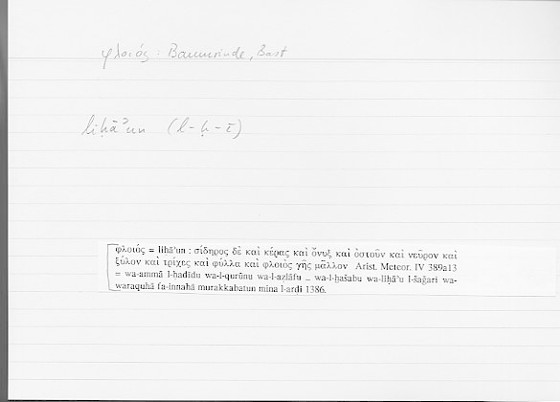 φλοιός: Baumrinde, Bast
liḥāʾun (l-ḥ-ī)
φλοιός = liḥāʾun : σίδηρος δὲ καὶ κέρας καὶ ὄνυξ καὶ ὀστοῦν καὶ νεῦρον καὶ
ξύλον καὶ τρίχες καὶ φύλλα καὶ φλοιὸς γῆς μᾶλλον Arist. Meteor. IV 389a13
= wa-ammā l-ḥadīdu wa-l-qurūnu wa-l-aẓlāfu ... wa-l-ḫašabu wa-liḥāʾu l-šaǧari wa-
waraquhā fa-innahā murakkabatun mina l-arḍi 1386.